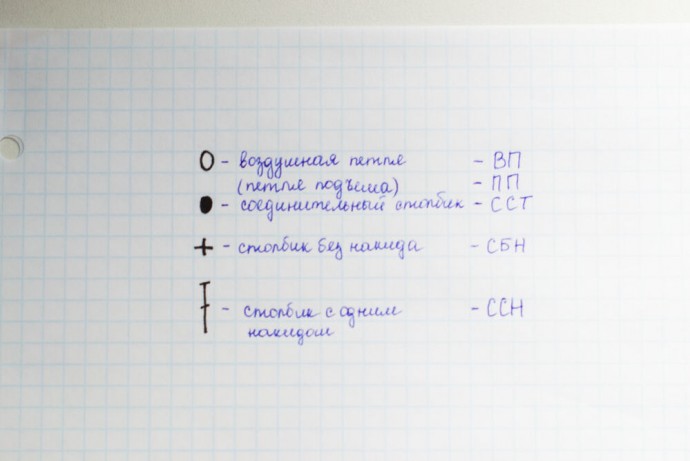 - воздушная петля - ВП
(петля подъёма) - ПП
- соединительный столбик - ССТ
- столбик без накида - СБН
- столбик с одним - ССН
накидом